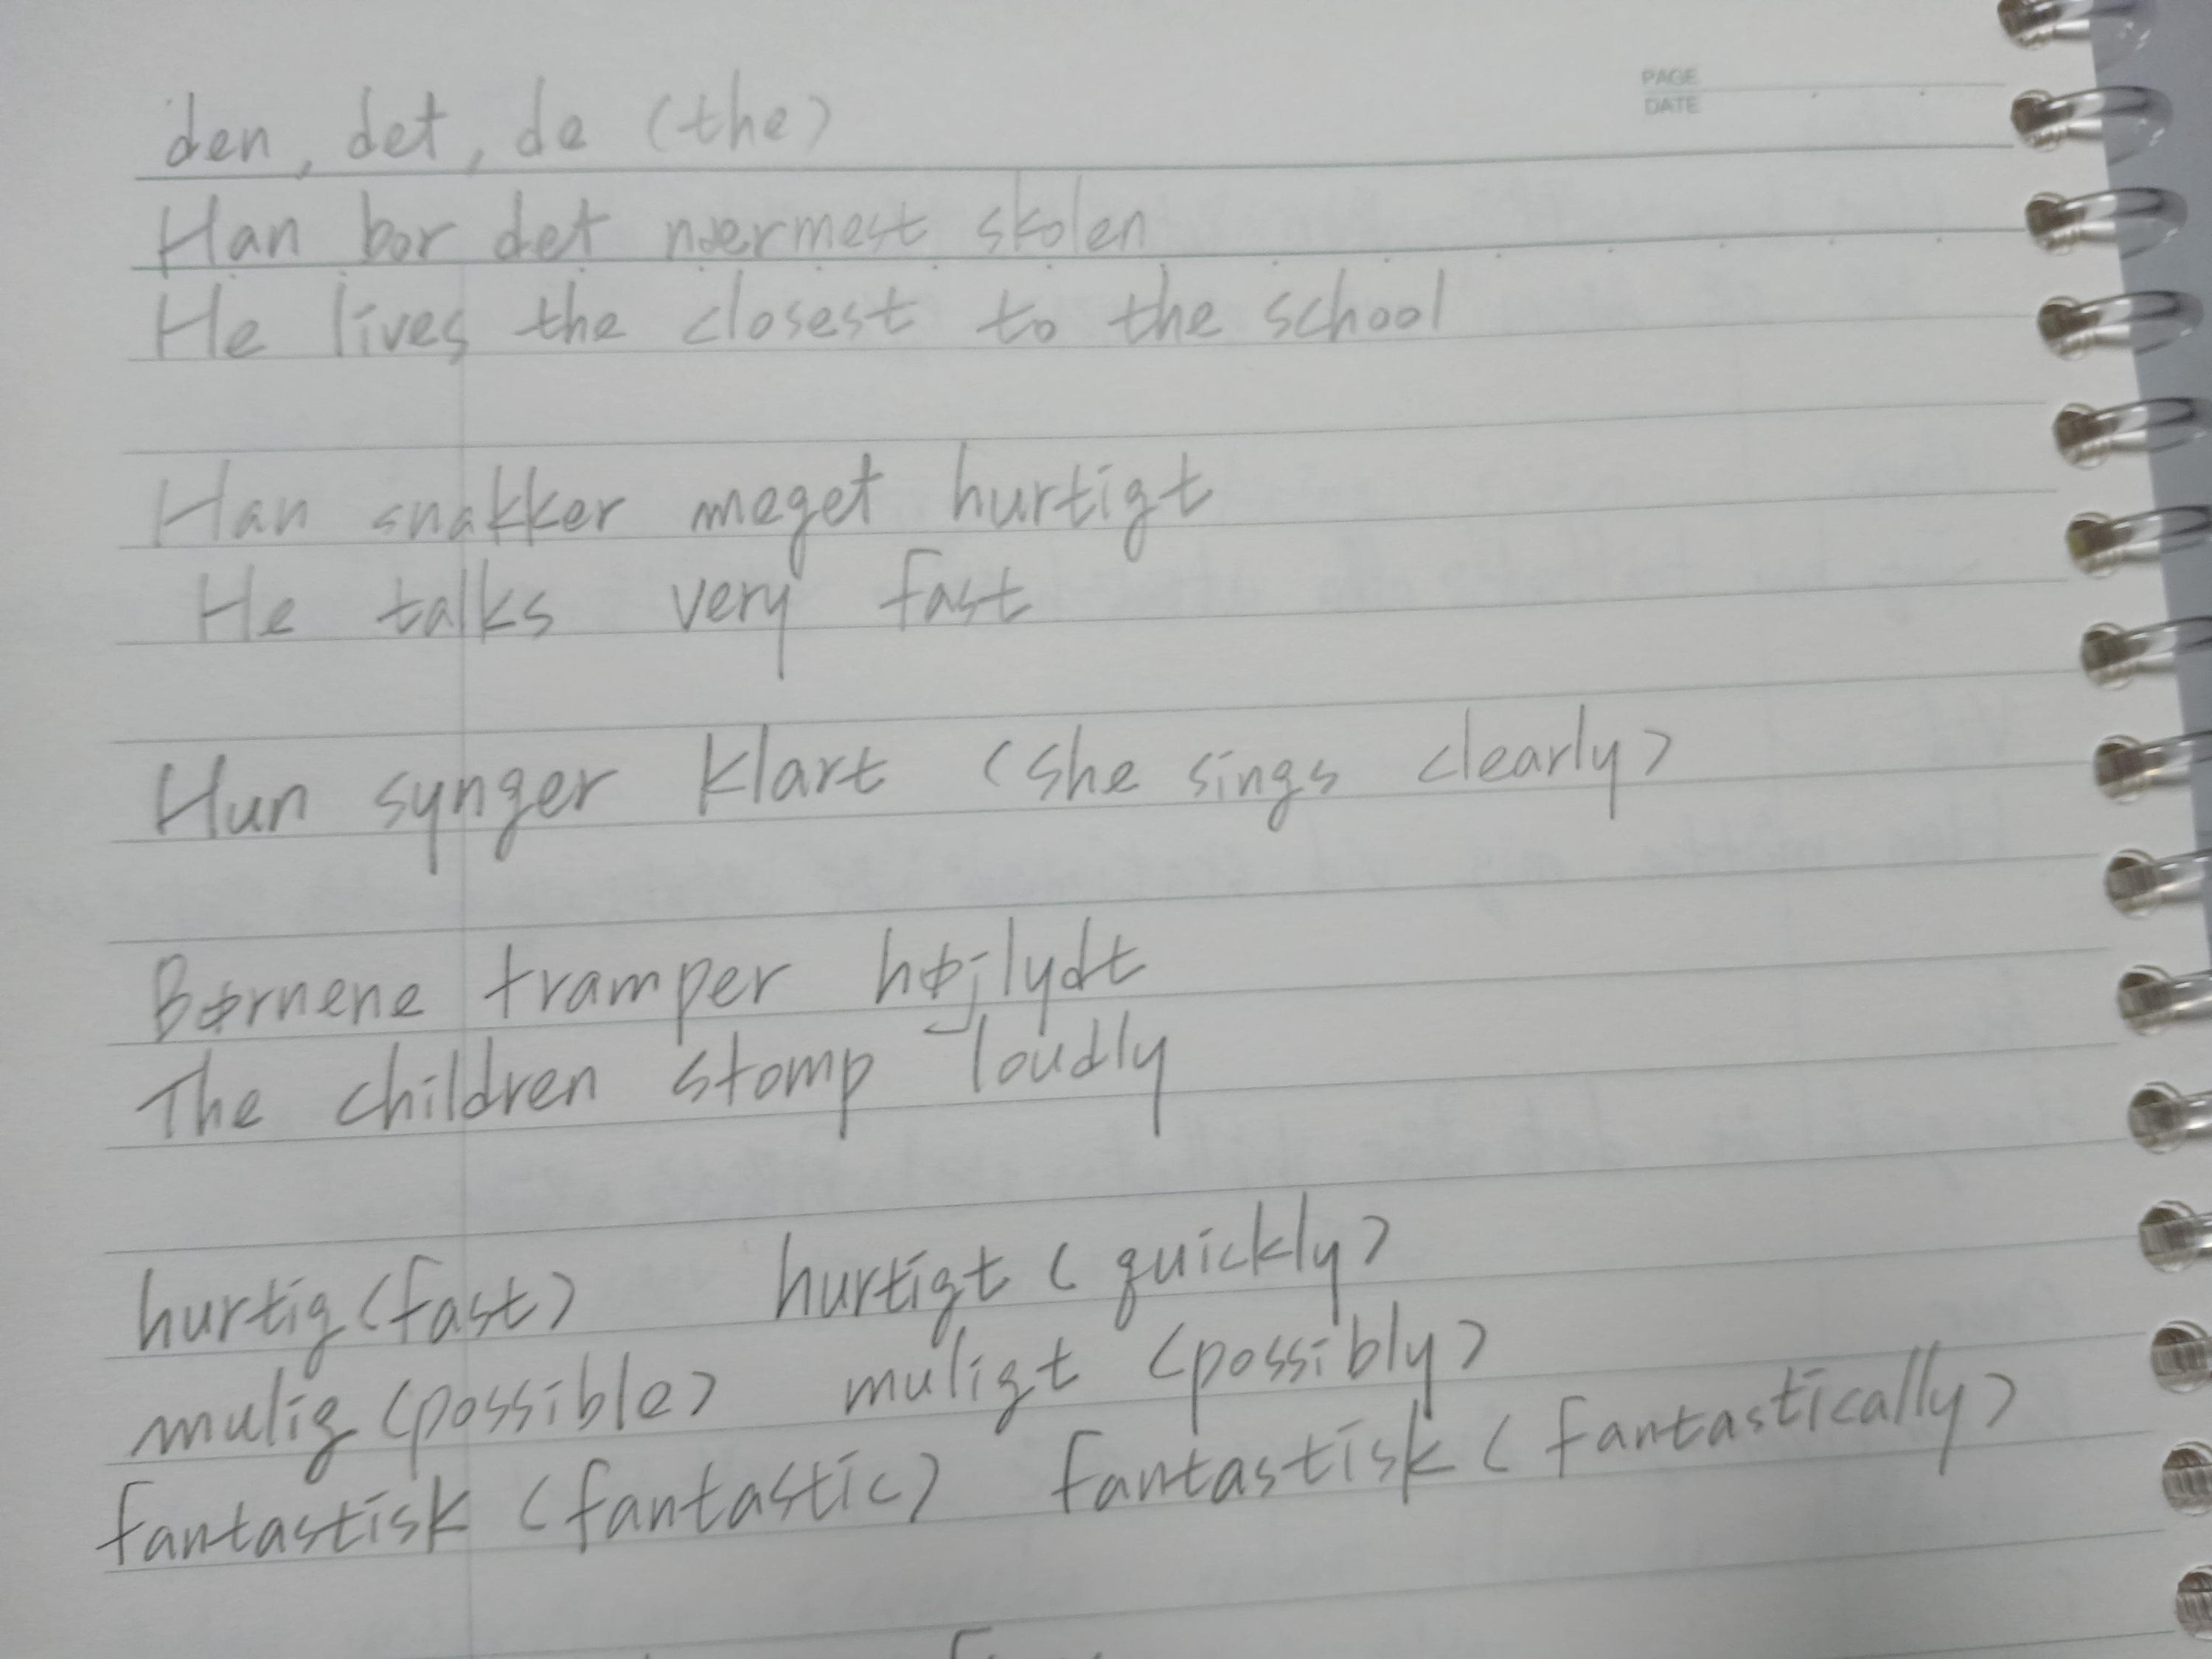 PAGE
DATE
den, det, de (the)
Han bor det nærmest skolen
He lives the closest to the school
Han snakker meget hurtigt
He talks very fast
Hun synger klart (she sings clearly)
Børnene tramper højlydt
The children stomp loudly
hurtig (fast) hurtigt (quickly)
mulig (possible) muligt (possibly)
fantastisk (fantastic) fantastisk (fantastically)